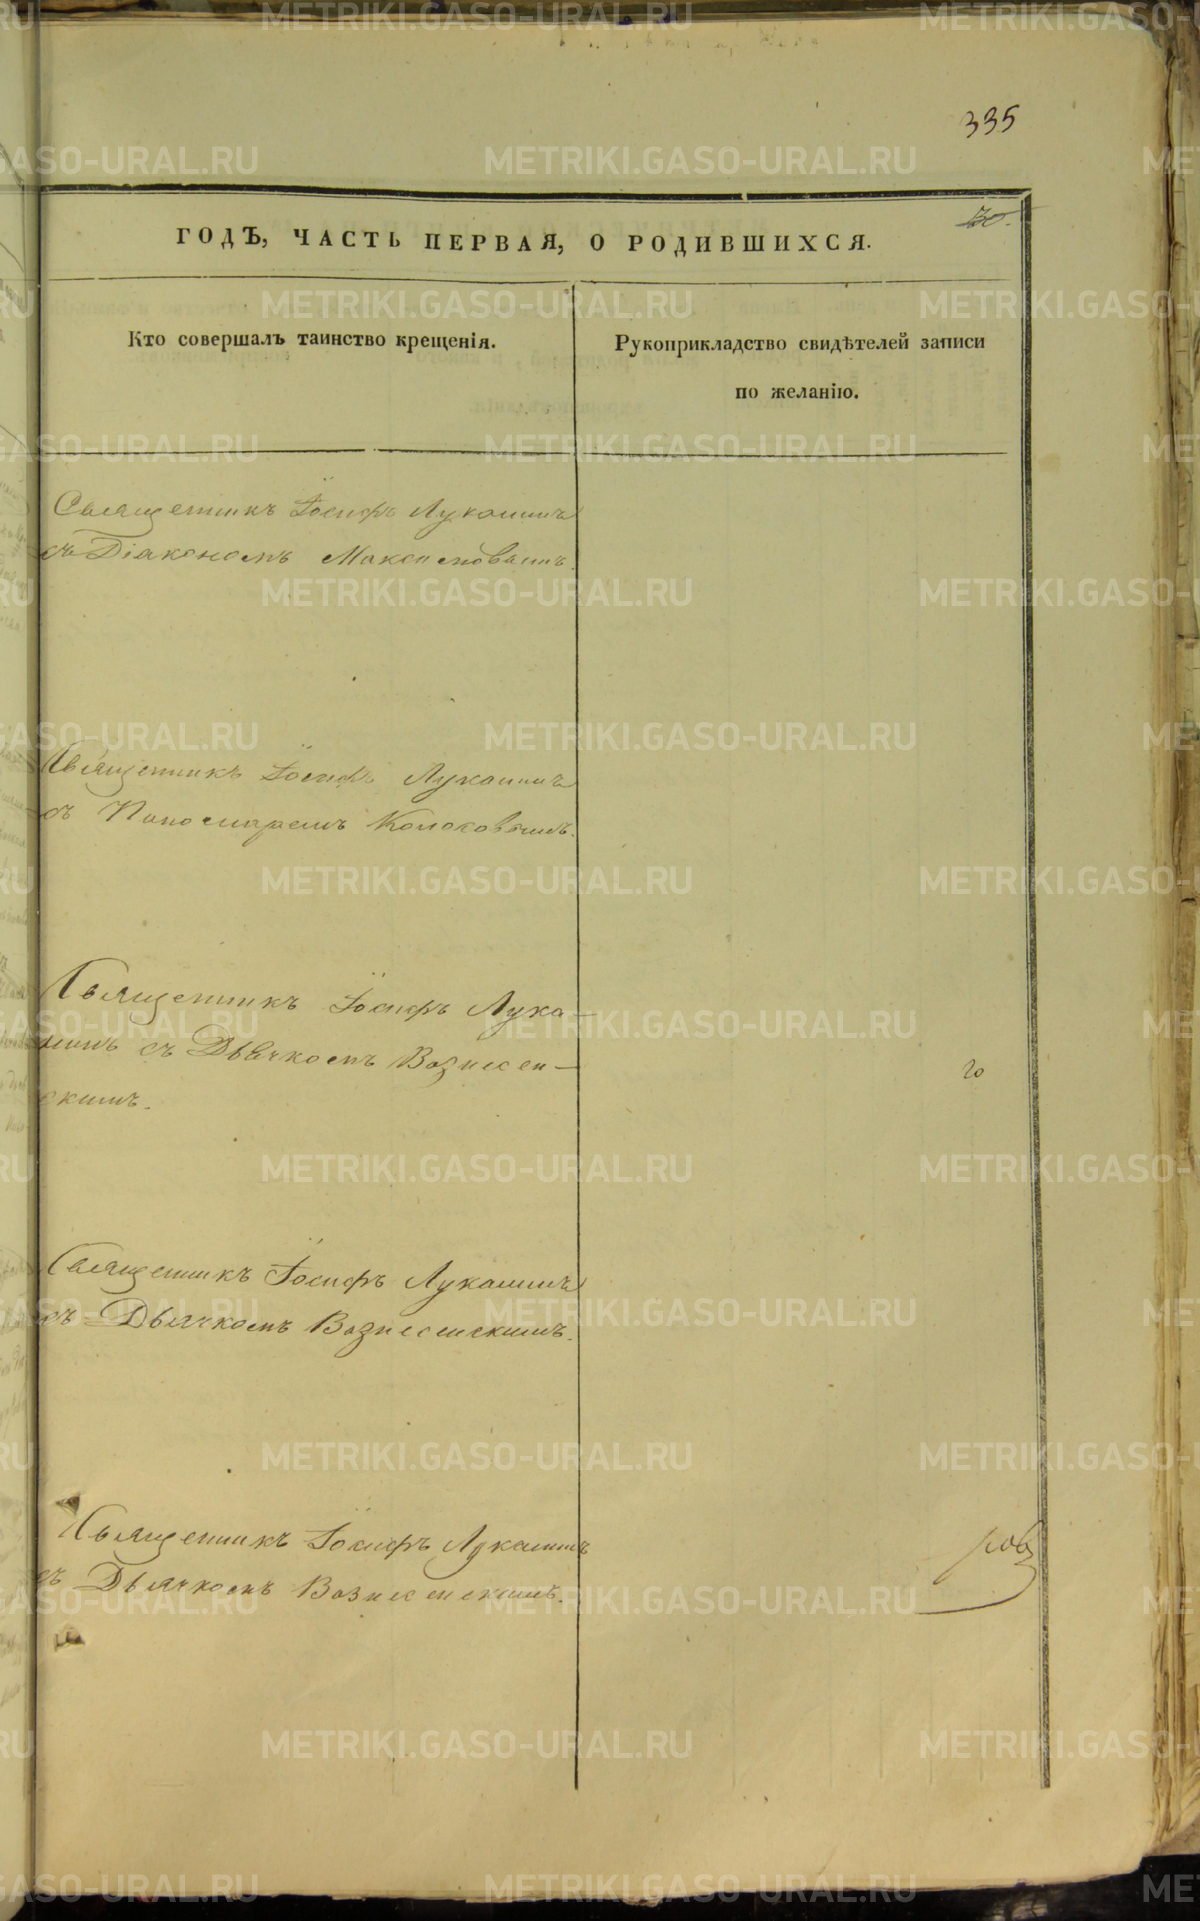 335
30.
ГОДЪ, ЧАСТЬ ПЕРВАЯ, О РОДИВШИХСЯ.
Кто совершалъ таинство крещенія.
Рукоприкладство свидѣтелей записи
по желанію.
Священникъ Іосифъ Лукашинъ
съ Діакономъ Максимовымъ.
Священникъ Іосифъ Лукашинъ
съ Пономаремъ
Священникъ Іосифъ Лука-
шинъ съ Дьячкомъ Вознесен-
скимъ.
го
Священникъ Іосифъ Лукашинъ
съ Дьячкомъ Вознесенскимъ.
Священникъ Іосифъ Лукашинъ
съ Дьячкомъ Вознесенскимъ.
ровъ
METRIKI.GASO-URAL.RU